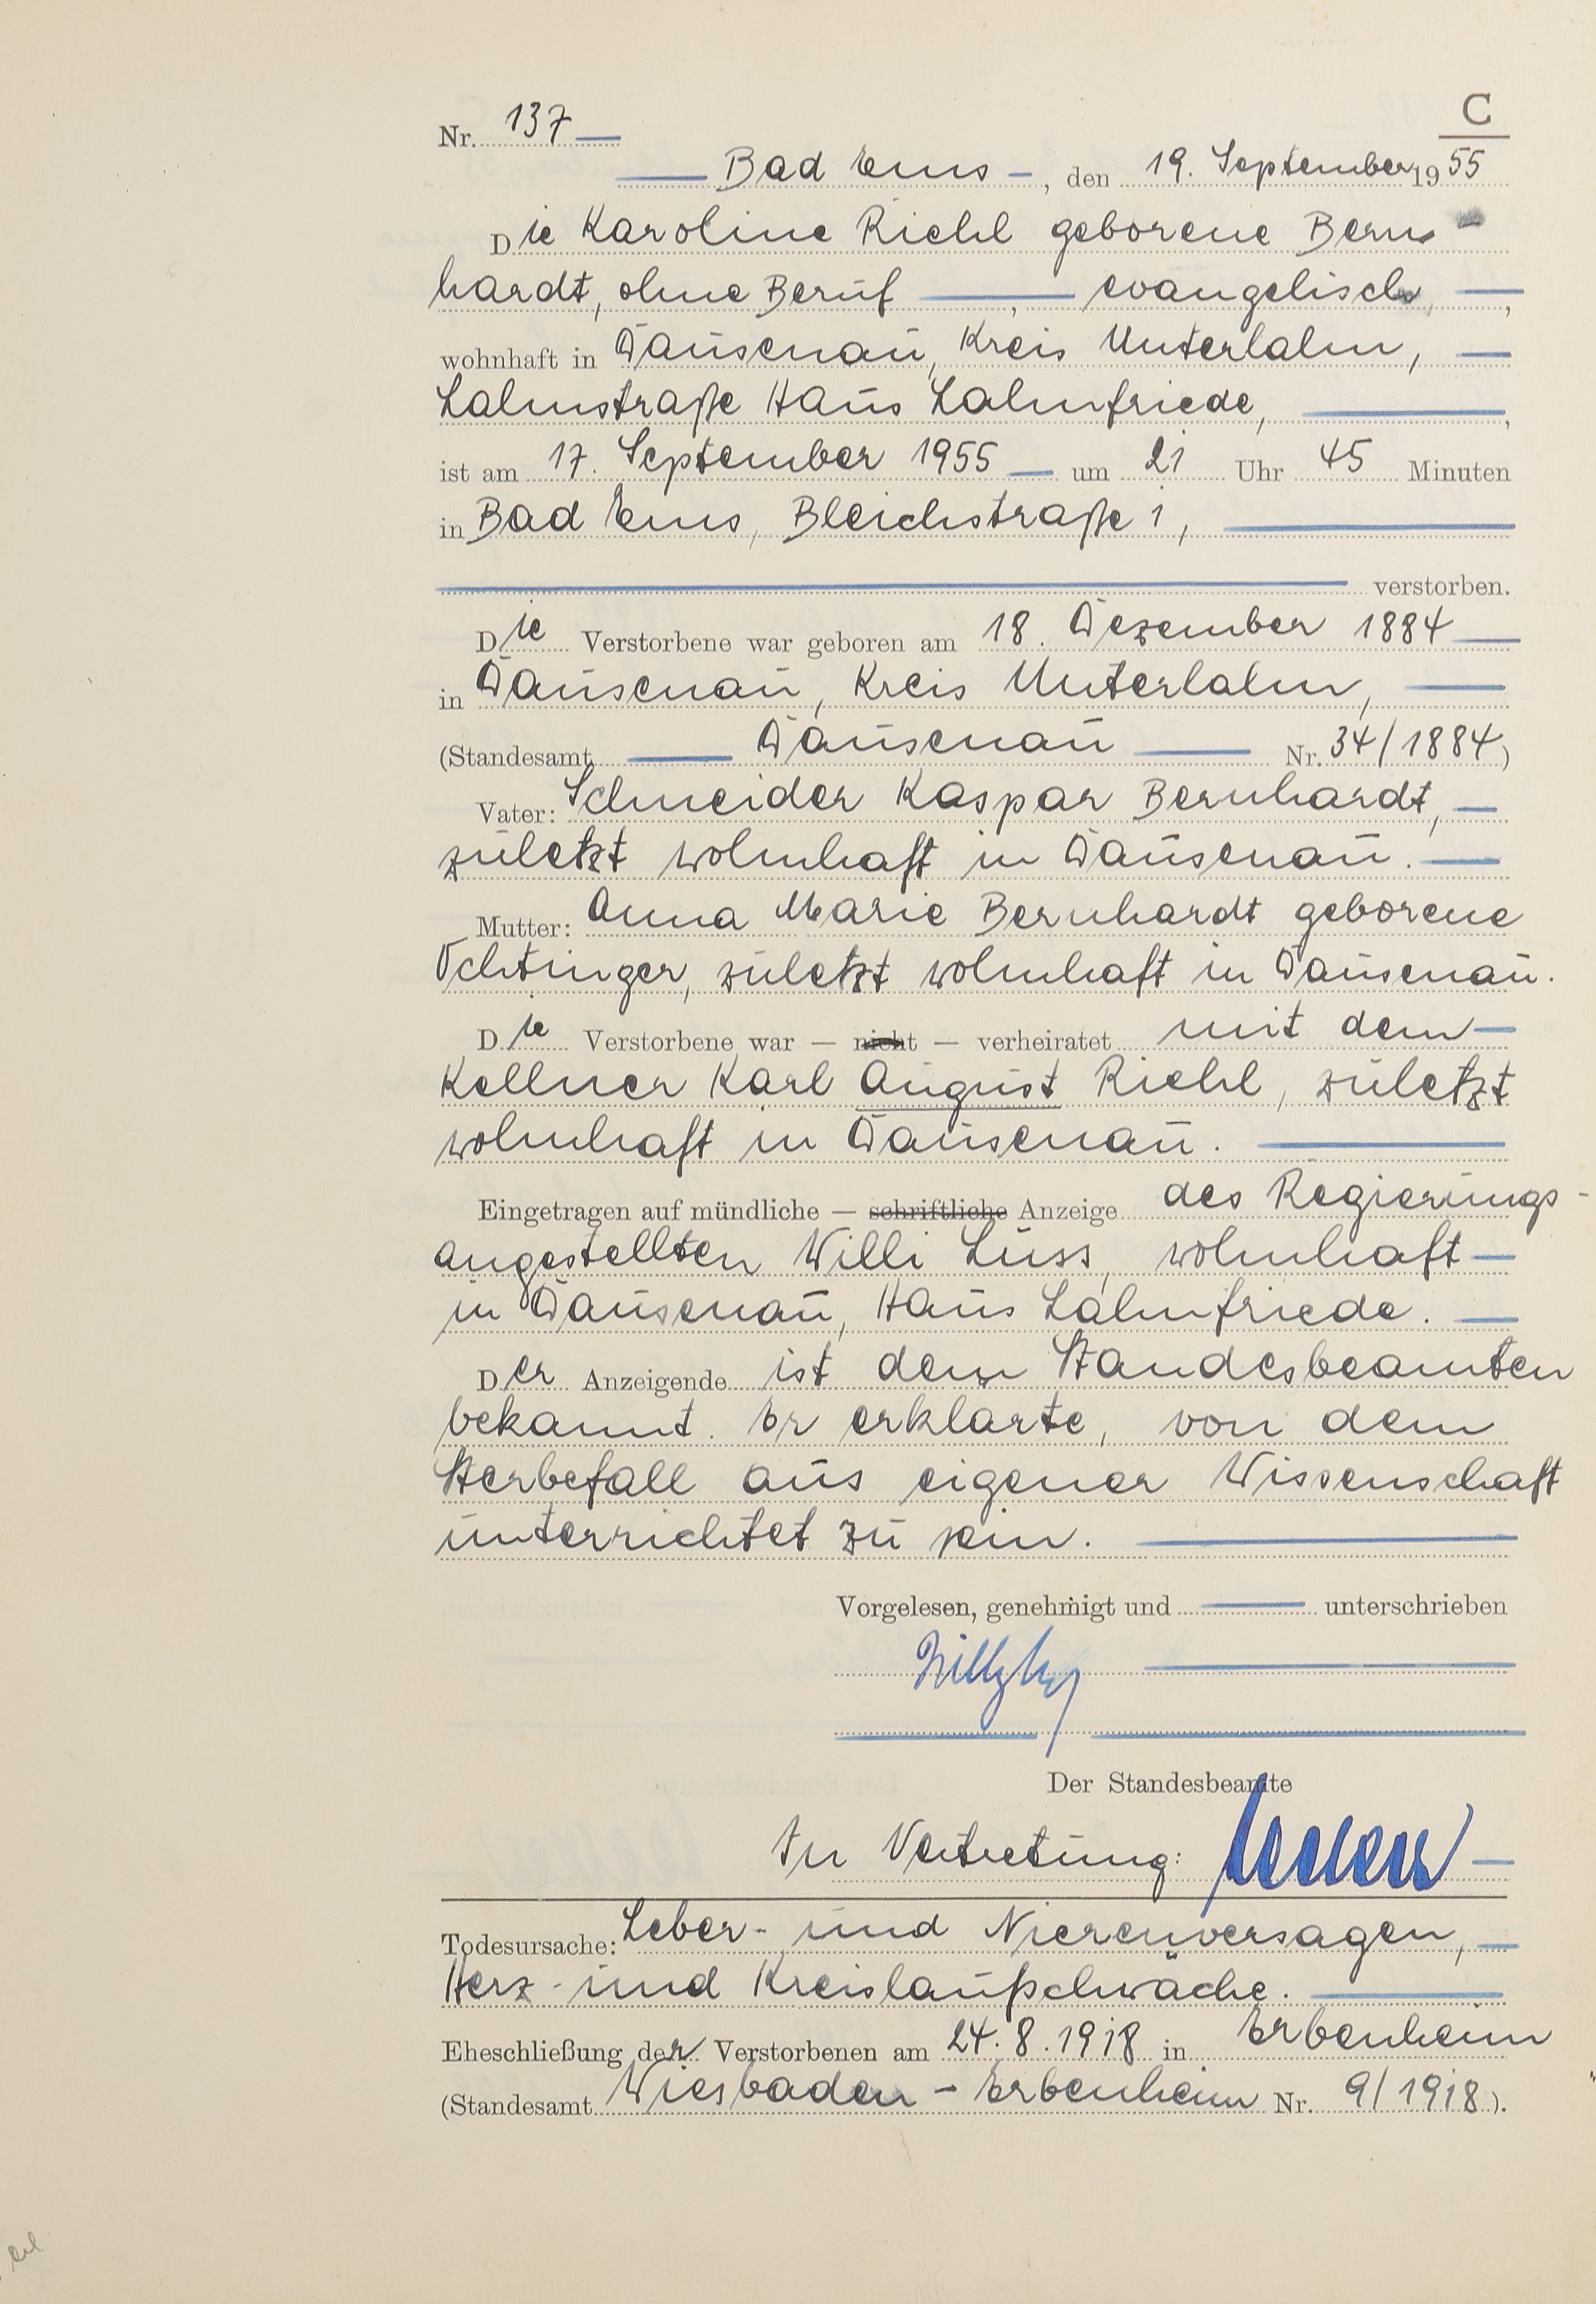 C
Nr. 137
Bad Ems, den 19. September 1955
Die Karoline Riehl geborene Bern-
hardt, ohne Beruf, evangelisch,
wohnhaft in Dausenau, Kreis Unterlahn,
Lahnstraße Haus Lahnfriede,
ist am 17. September 1955 um 21 Uhr 45 Minuten
in Bad Ems, Bleichstraße 1,
verstorben.
Die Verstorbene war geboren am 18. Dezember 1884
in Dausenau, Kreis Unterlahn,
(Standesamt Dausenau Nr. 34/1884)
Vater: Schneider Kaspar Bernhardt,
zuletzt wohnhaft in Dausenau.
Mutter: Anna Marie Bernhardt geborene
Ochtinger, zuletzt wohnhaft in Dausenau.
Die Verstorbene war — nicht — verheiratet mit dem
Kellner Karl August Riehl, zuletzt
wohnhaft in Dausenau.
Eingetragen auf mündliche — schriftliche Anzeige des Regierungs-
angestellten Willi Luss, wohnhaft
in Dausenau, Haus Lahnfriede.
Der Anzeigende ist dem Standesbeamten
bekannt. Er erklärte, von dem
Sterbefall aus eigener Wissenschaft
unterrichtet zu sein.
Vorgelesen, genehmigt und unterschrieben
Der Standesbeamte
In Vertretung:
Todesursache: Leber- und Nierenversagen,
Herz- und Kreislaufschwäche.
Eheschließung der Verstorbenen am 24.8.1918 in Erbenheim
(Standesamt Wiesbaden-Erbenheim Nr. 9/1918).